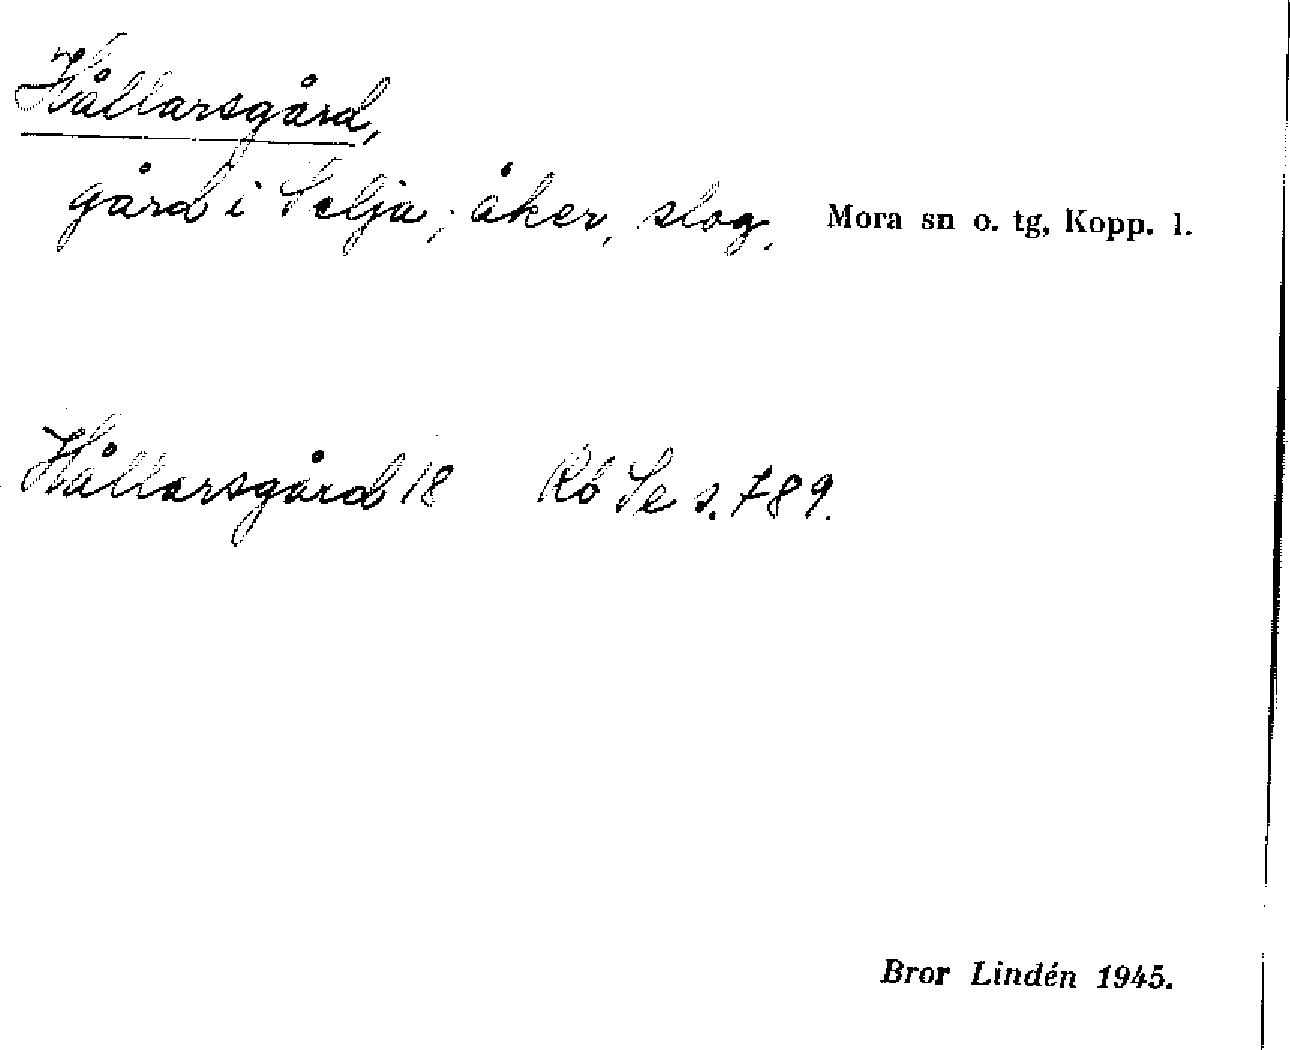 Hållarsgård,
gård i Selja; åker, slog. Mora sn o. tg, Kopp. l.
Hållarsgård 18 Rb Se s. 789.
Bror Lindén 1945.